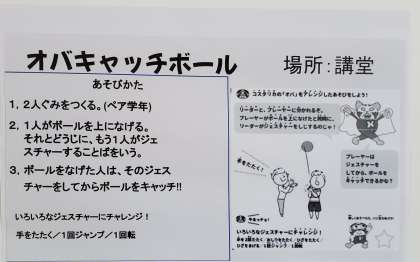 オバキャッチボール
場所：講堂
あそびかた
1，2人ぐみをつくる。(ペア学年)
2，1人がボールを上になげる。
それとどうじに、もう1人がジェ
スチャーすることばをいう。
3，ボールをなげた人は、そのジェス
チャーをしてからボールをキャッチ!!
いろいろなジェスチャーにチャレンジ！
手をたたく／1回ジャンプ／1回転
コスタリカの「オバ」をアレンジしたあそびをしよう！
リーダーと、プレーヤーに分かれるぞ。
プレーヤーがボールを上になげたと同時に、
リーダーがジェスチャーをしじするのじゃ！
手をたたく！
プレーヤーは
ジェスチャーを
してから、ボールを
キャッチできるかな？
いろいろなジェスチャーにチャレンジ！